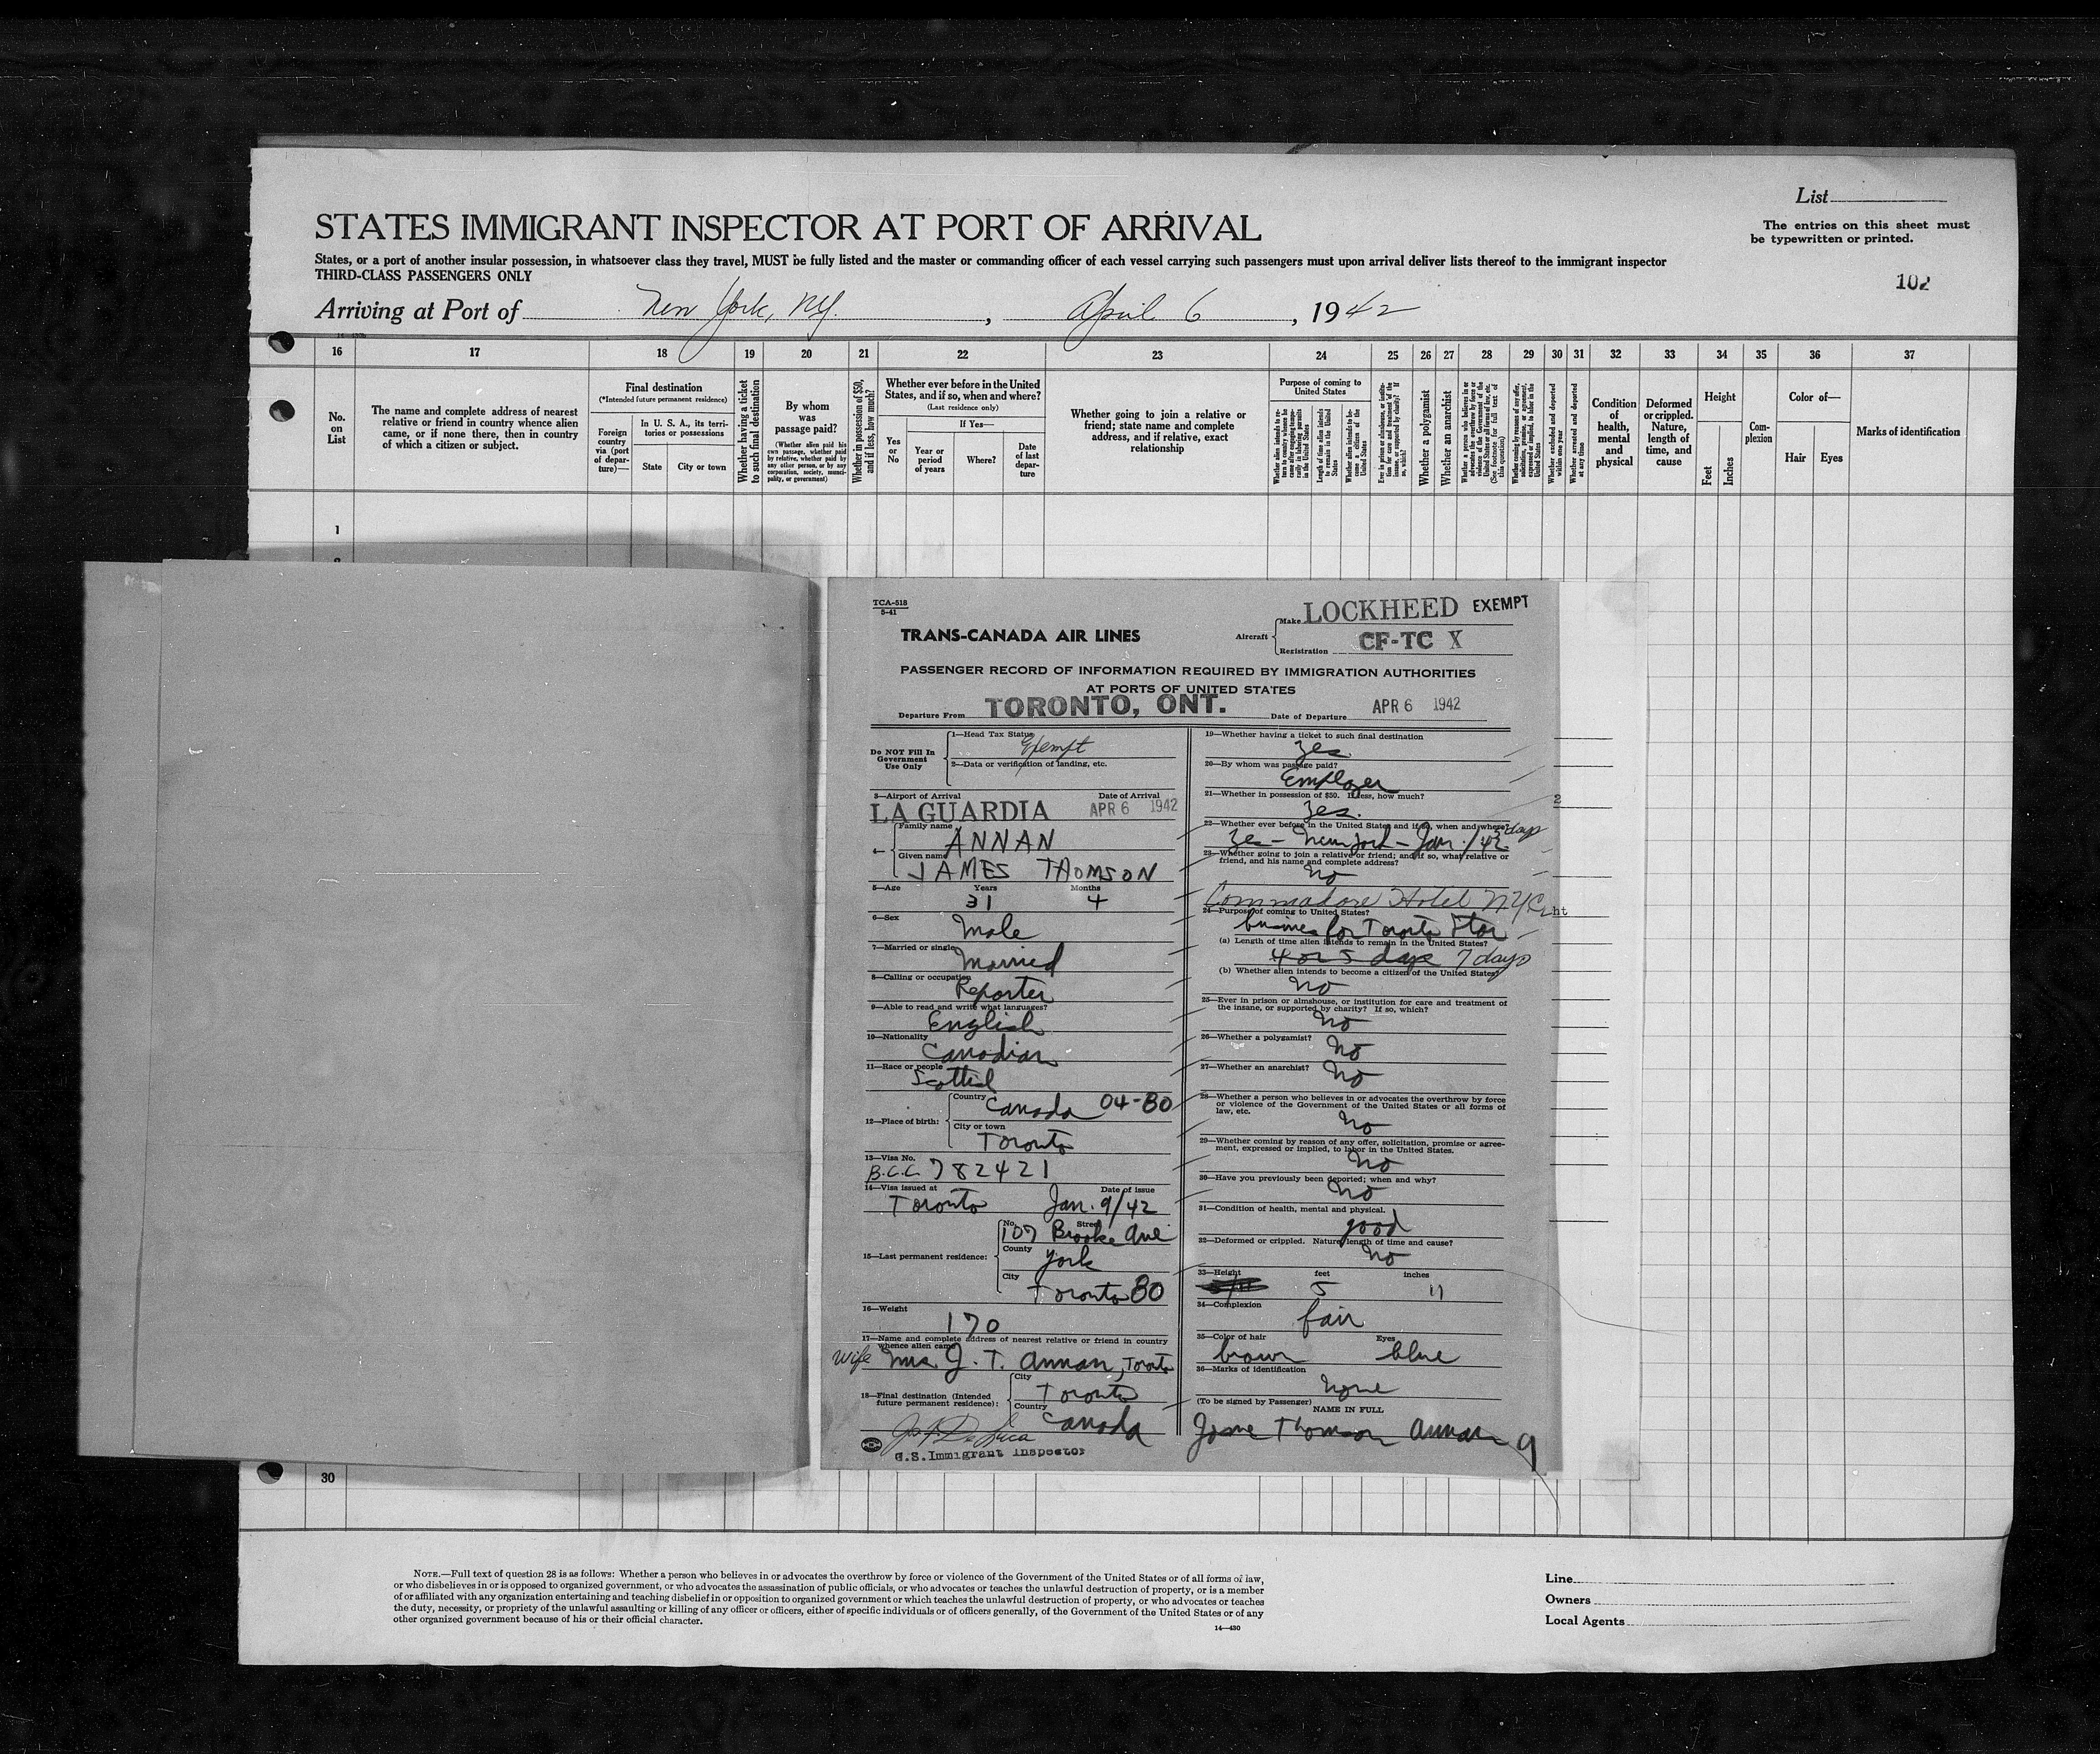 List
STATES IMMIGRANT INSPECTOR AT PORT OF ARRIVAL
The entries on this sheet must
be typewritten or printed.
States, or a port of another insular possession, in whatsoever class they travel, MUST be fully listed and the master or commanding officer of each vessel carrying such passengers must upon arrival deliver lists thereof to the immigrant inspector
THIRD-CLASS PASSENGERS ONLY
102
Arriving at Port of New York, NY. , April 6 , 1942
16 17 18 19 20 21 22 23 24 25 26 27 28 29 30 31 32 33 34 35 36 37
No. on List
The name and complete address of nearest relative or friend in country whence alien came, or if none there, then in country of which a citizen or subject.
Final destination
(*Intended future permanent residence)
Foreign country via (port of departure)—
In U. S. A., its territories or possessions
State
City or town
Whether having a ticket to such final destination
By whom was passage paid?
(Whether alien paid his own passage, whether paid by relative, whether paid by any other person, or by any corporation, society, municipality, or government)
Whether in possession of $50, and if less, how much?
Whether ever before in the United States, and if so, when and where?
(Last residence only)
Yes or No
If Yes—
Year or period of years
Where?
Date of last departure
Whether going to join a relative or friend; state name and complete address, and if relative, exact relationship
Purpose of coming to United States
Length of time alien intends to remain in the United States
Whether alien intends to become a citizen of the United States
Whether a polygamist
Whether an anarchist
Whether excluded and deported within one year
Whether arrested and deported at any time
Condition of health, mental and physical
Deformed or crippled. Nature, length of time, and cause
Height
Feet
Inches
Complexion
Color of—
Hair
Eyes
Marks of identification
1
TCA-518
5-41
TRANS-CANADA AIR LINES
Aircraft
Make LOCKHEED EXEMPT
Registration CF-TC X
PASSENGER RECORD OF INFORMATION REQUIRED BY IMMIGRATION AUTHORITIES
AT PORTS OF UNITED STATES
Departure From TORONTO, ONT. Date of Departure APR 6 1942
Do NOT Fill In Government Use Only
1—Head Tax Status Exempt
2—Data or verification of landing, etc.
3—Airport of Arrival Date of Arrival
LA GUARDIA APR 6 1942
4— Family name ANNAN
Given name JAMES THOMSON
5—Age Years 31 Months 4
6—Sex Male
7—Married or single Married
8—Calling or occupation Reporter
9—Able to read and write what languages? English
10—Nationality Canadian
11—Race or people Scottish
12—Place of birth: Country Canada 04-80
City or town Toronto
13—Visa No. B.C.C. 782421
14—Visa issued at Toronto Date of issue Jan. 9/42
15—Last permanent residence: No. Street 107 Brooke Ave
County York
City Toronto 80
16—Weight 170
17—Name and complete address of nearest relative or friend in country whence alien came
wife Mrs. J. T. Annan, Toronto
18—Final destination (Intended future permanent residence): City Toronto
Country Canada
U.S. Immigrant Inspector
19—Whether having a ticket to such final destination
Yes.
20—By whom was passage paid?
Employer
21—Whether in possession of $50. If less, how much?
Yes.
22—Whether ever before in the United States and if so, when and where?
Yes — New York — Jan. /42 3 days
23—Whether going to join a relative or friend; and if so, what relative or friend, and his name and complete address?
No
Commadore Hotel NYC
24—Purpose of coming to United States?
business for Toronto Star
(a) Length of time alien intends to remain in the United States?
4 or 5 days 7 days
(b) Whether alien intends to become a citizen of the United States?
No
25—Ever in prison or almshouse, or institution for care and treatment of the insane, or supported by charity? If so, which?
No
26—Whether a polygamist? No
27—Whether an anarchist? No
28—Whether a person who believes in or advocates the overthrow by force or violence of the Government of the United States or all forms of law, etc.
No
29—Whether coming by reason of any offer, solicitation, promise or agreement, expressed or implied, to labor in the United States.
No
30—Have you previously been deported; when and why?
No
31—Condition of health, mental and physical.
good
32—Deformed or crippled. Nature, length of time and cause?
No
33—Height feet 5 inches 11
34—Complexion fair
35—Color of hair brown Eyes blue
36—Marks of identification
None
(To be signed by Passenger) NAME IN FULL
James Thomson Annan 9
30
NOTE.—Full text of question 28 is as follows: Whether a person who believes in or advocates the overthrow by force or violence of the Government of the United States or of all forms of law,
or who disbelieves in or is opposed to organized government, or who advocates the assassination of public officials, or who advocates or teaches the unlawful destruction of property, or is a member
of or affiliated with any organization entertaining and teaching disbelief in or opposition to organized government or which teaches the unlawful destruction of property, or who advocates or teaches
the duty, necessity, or propriety of the unlawful assaulting or killing of any officer or officers, either of specific individuals or of officers generally, of the Government of the United States or of any
other organized government because of his or their official character.
14—430
Line
Owners
Local Agents